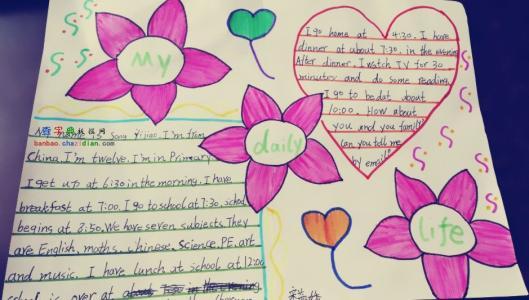 My
daily
life
I go home at 4:20. I have
dinner at about 7:30. in the evening
After dinner, I watch TV for 30
minutes and do some reading.
I go to bed at about
10:00. How about
you and you family?
Can you tell me
by email?
name is Song Yijiao. I'm from
China. I'm twelve. I'm in Primary
I get up at 6:30 in the morning. I have
breakfast at 7:00. I go to school at 7:30. School
begins at 8:50. We have seven subjects. They
are English, moths, chinese, Science, PE, art
and music. I have lunch at school at 12:00
school is over at
banbao.chazidian.com